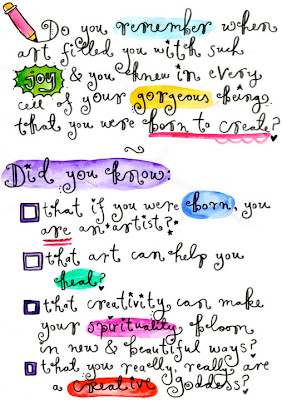 Do you remember when
art filled you with such
joy & you knew in every
cell of your gorgeous being
that you were born to create?
Did you know:
that if you were born, you
are an artist?
that art can help you
heal?
that creativity can make
your spirituality bloom
in new & beautiful ways?
that you really, really are
a creative goddess?